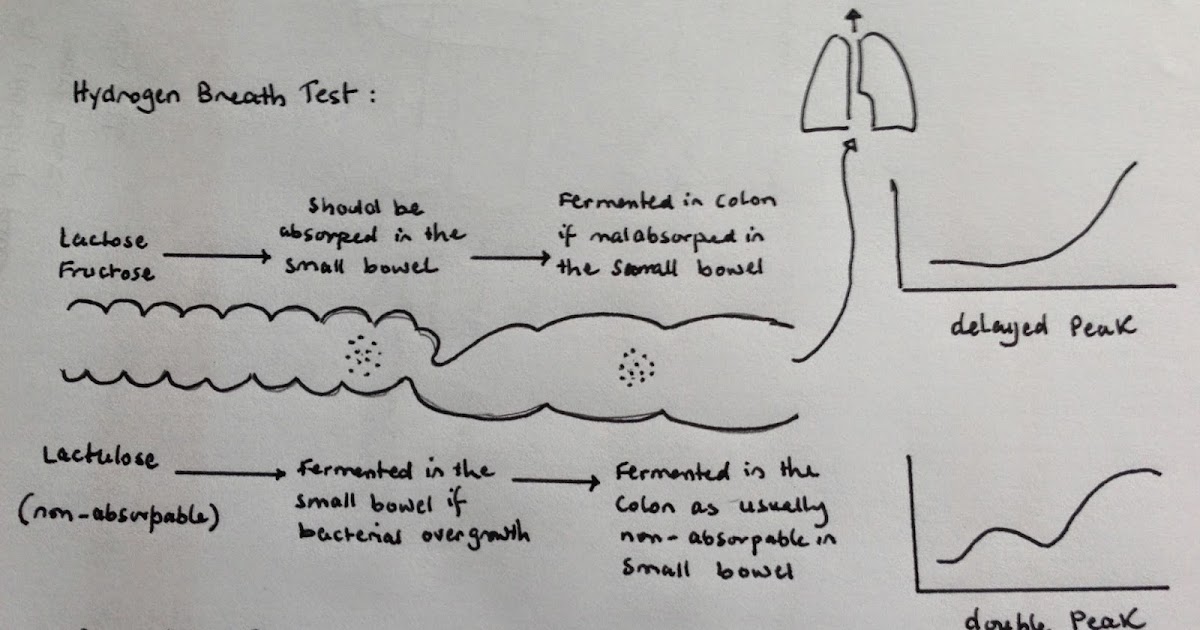 Hydrogen Breath Test :
Lactose
Fructose
Should be
absorped in the
small bowel
Fermented in colon
if malabsorped in
the small bowel
delayed Peak
Lactulose
(non-absorpable)
Fermented in the
small bowel if
bacterial overgrowth
Fermented in the
Colon as usually
non-absorpable in
small bowel
double Peak